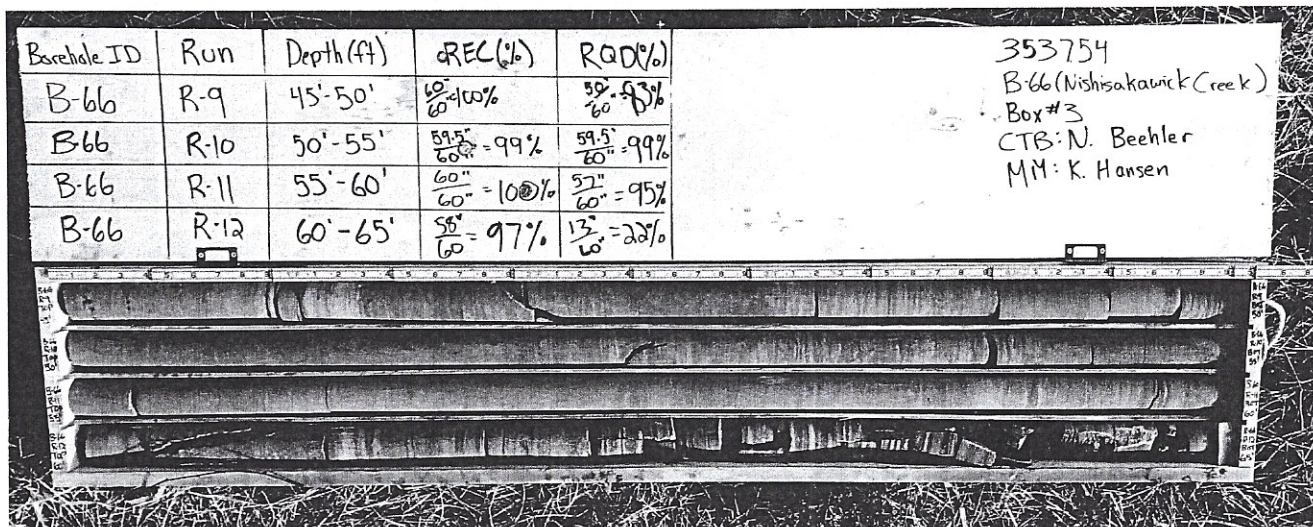 Borehole ID Run Depth (ft) REC(%) RQD(%)
B-66 R-9 45'-50' 60"/60" = 100% 50"/60" = 83%
B-66 R-10 50'-55' 59.5"/60" = 99% 59.5"/60" = 99%
B-66 R-11 55'-60' 60"/60" = 100% 57"/60" = 95%
B-66 R-12 60'-65' 58"/60 = 97% 13"/60" = 22%
353754
B-66 (Nishisakawick Creek)
Box #3
CTB: N. Beehler
MM: K. Hansen